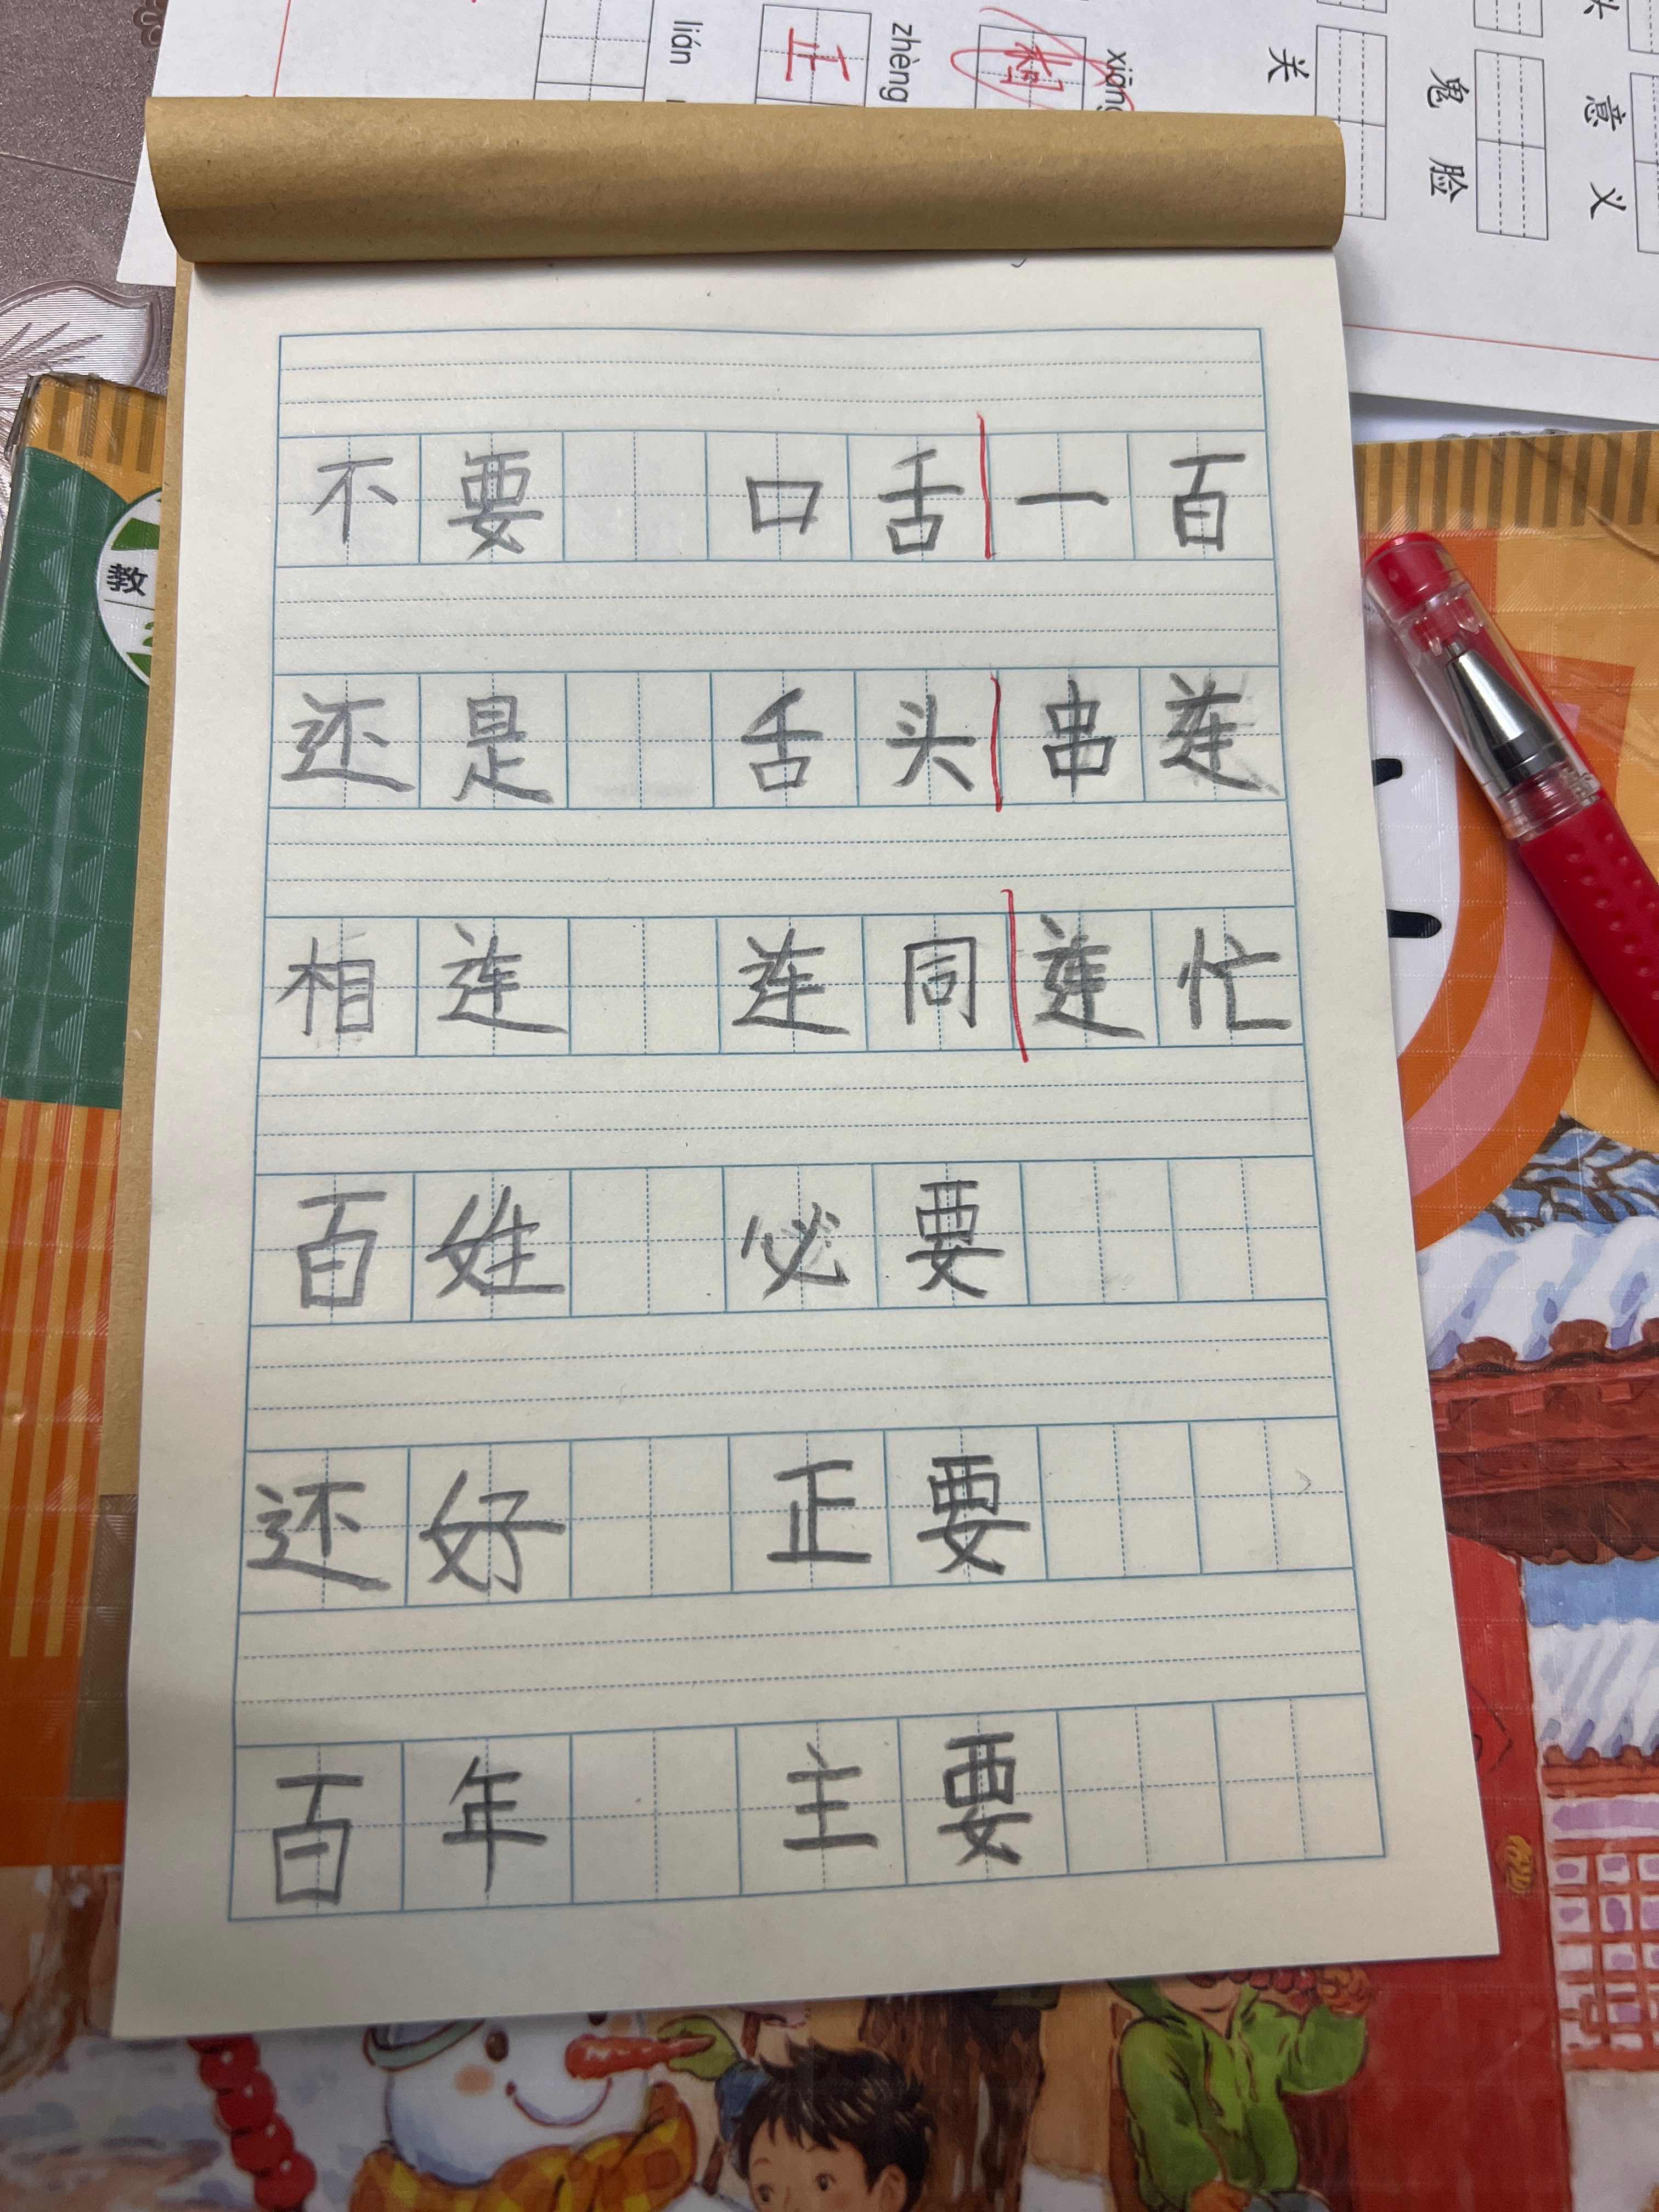 lián zhèng xiāng
正 相
关 鬼脸 意义 头
教
不要 口舌 一百
还是 舌头 串连
相连 连同 连忙
百姓 必要
还好 正要
百年 主要